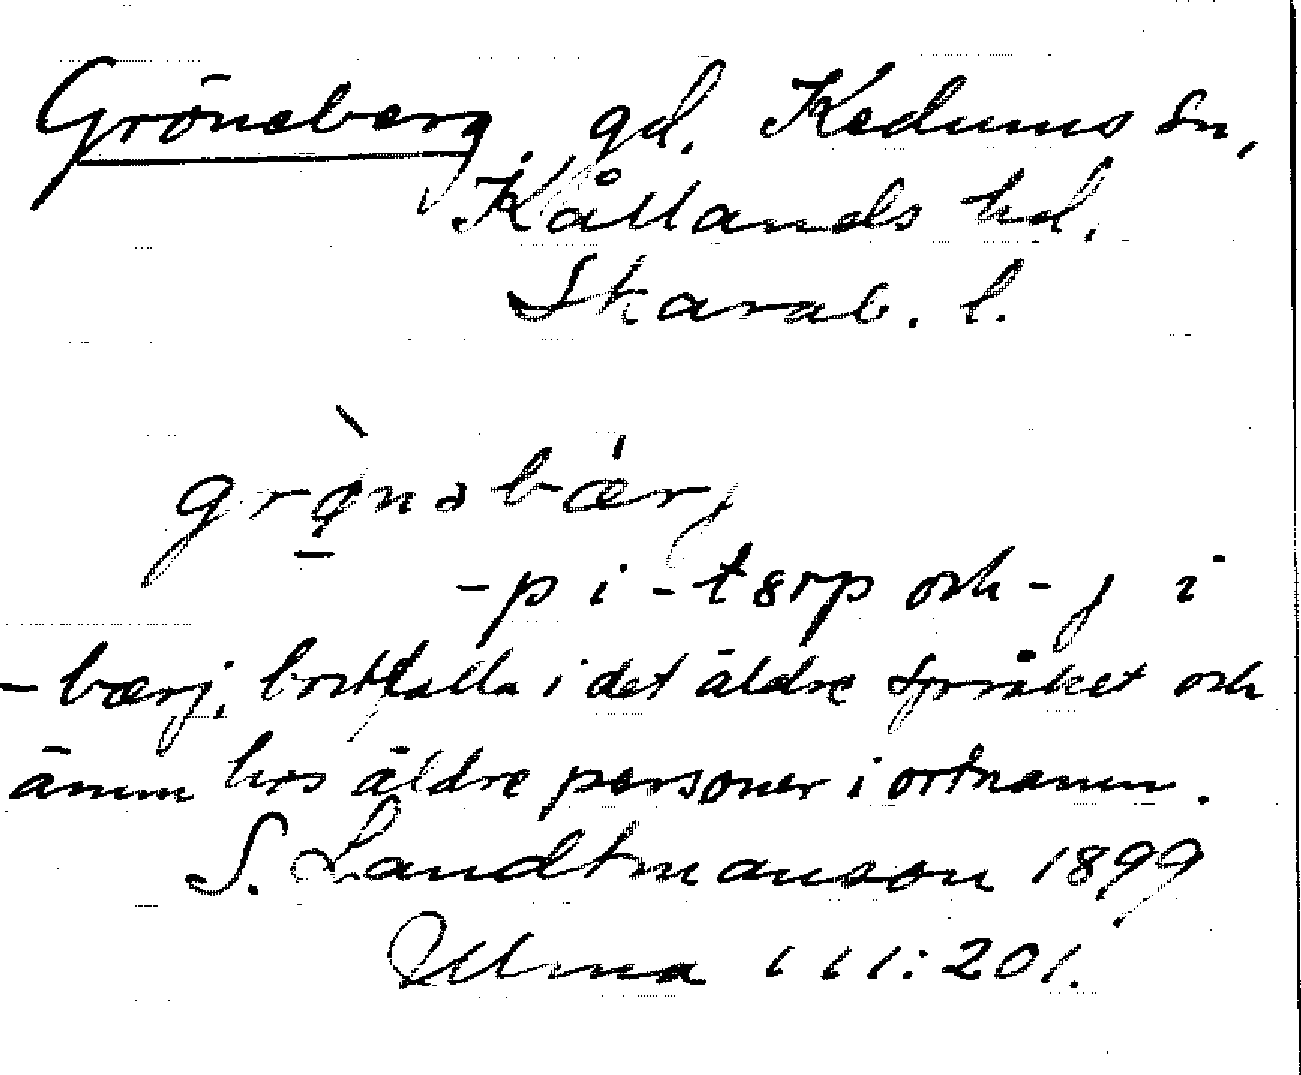 Gröneberg, gd. Kedums sn,
Kållands hd.
Skarab. l.
grø̀nəbær̍j
-p i -tørp och -j i
-bærj, bortfalla i det äldre språket och
ännu hos äldre personer i ortnamn.
S. Landtmanson 1899
Ulma 111:201.